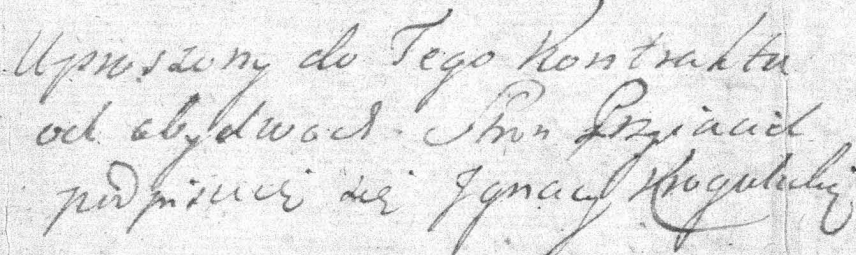 Uproszony do Tego Kontraktu
od obydwoch Stron Przyiaciel
podpisuię się Ignacy Krogulecki